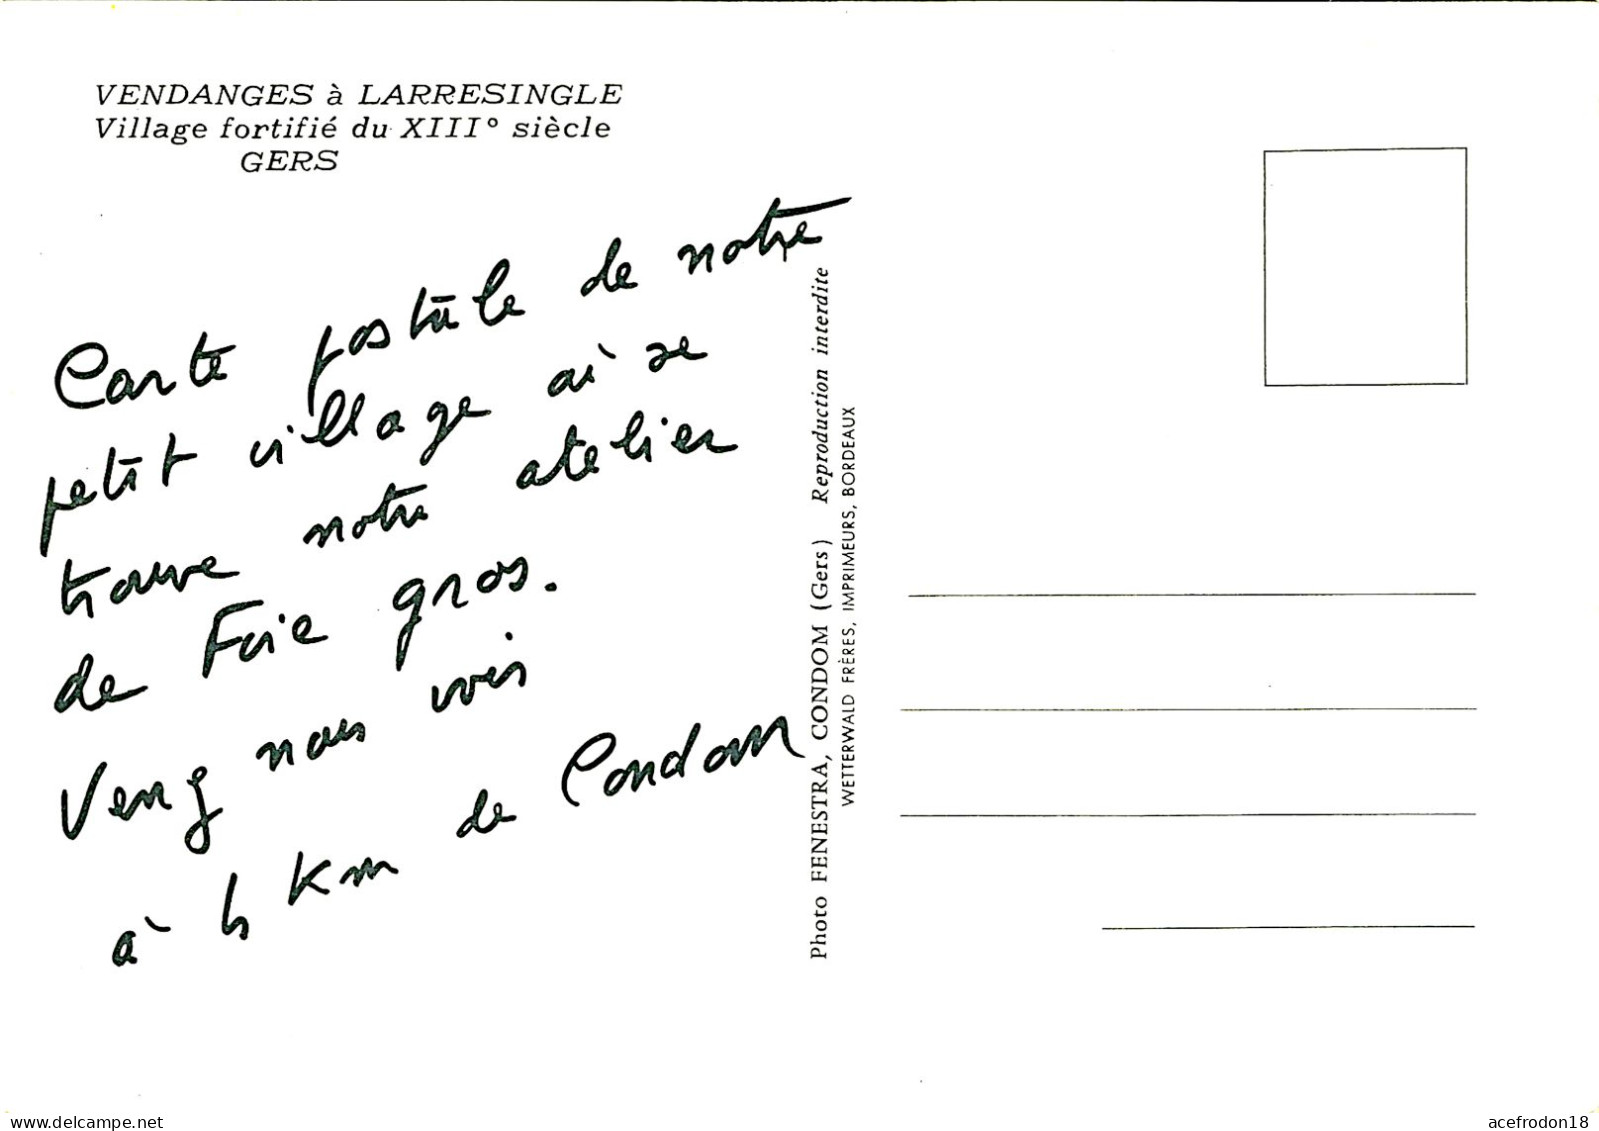 VENDANGES à LARRESINGLE
Village fortifié du XIII° siècle
GERS
Carte postale de notre
petit village où se
trouve notre atelier
de Foie gras.
Venez nous voir
à 4 Km de Condom
Photo FENESTRA, CONDOM (Gers) Reproduction interdite
WETTERWALD FRÈRES, IMPRIMEURS, BORDEAUX
www.delcampe.net
acefrodon18